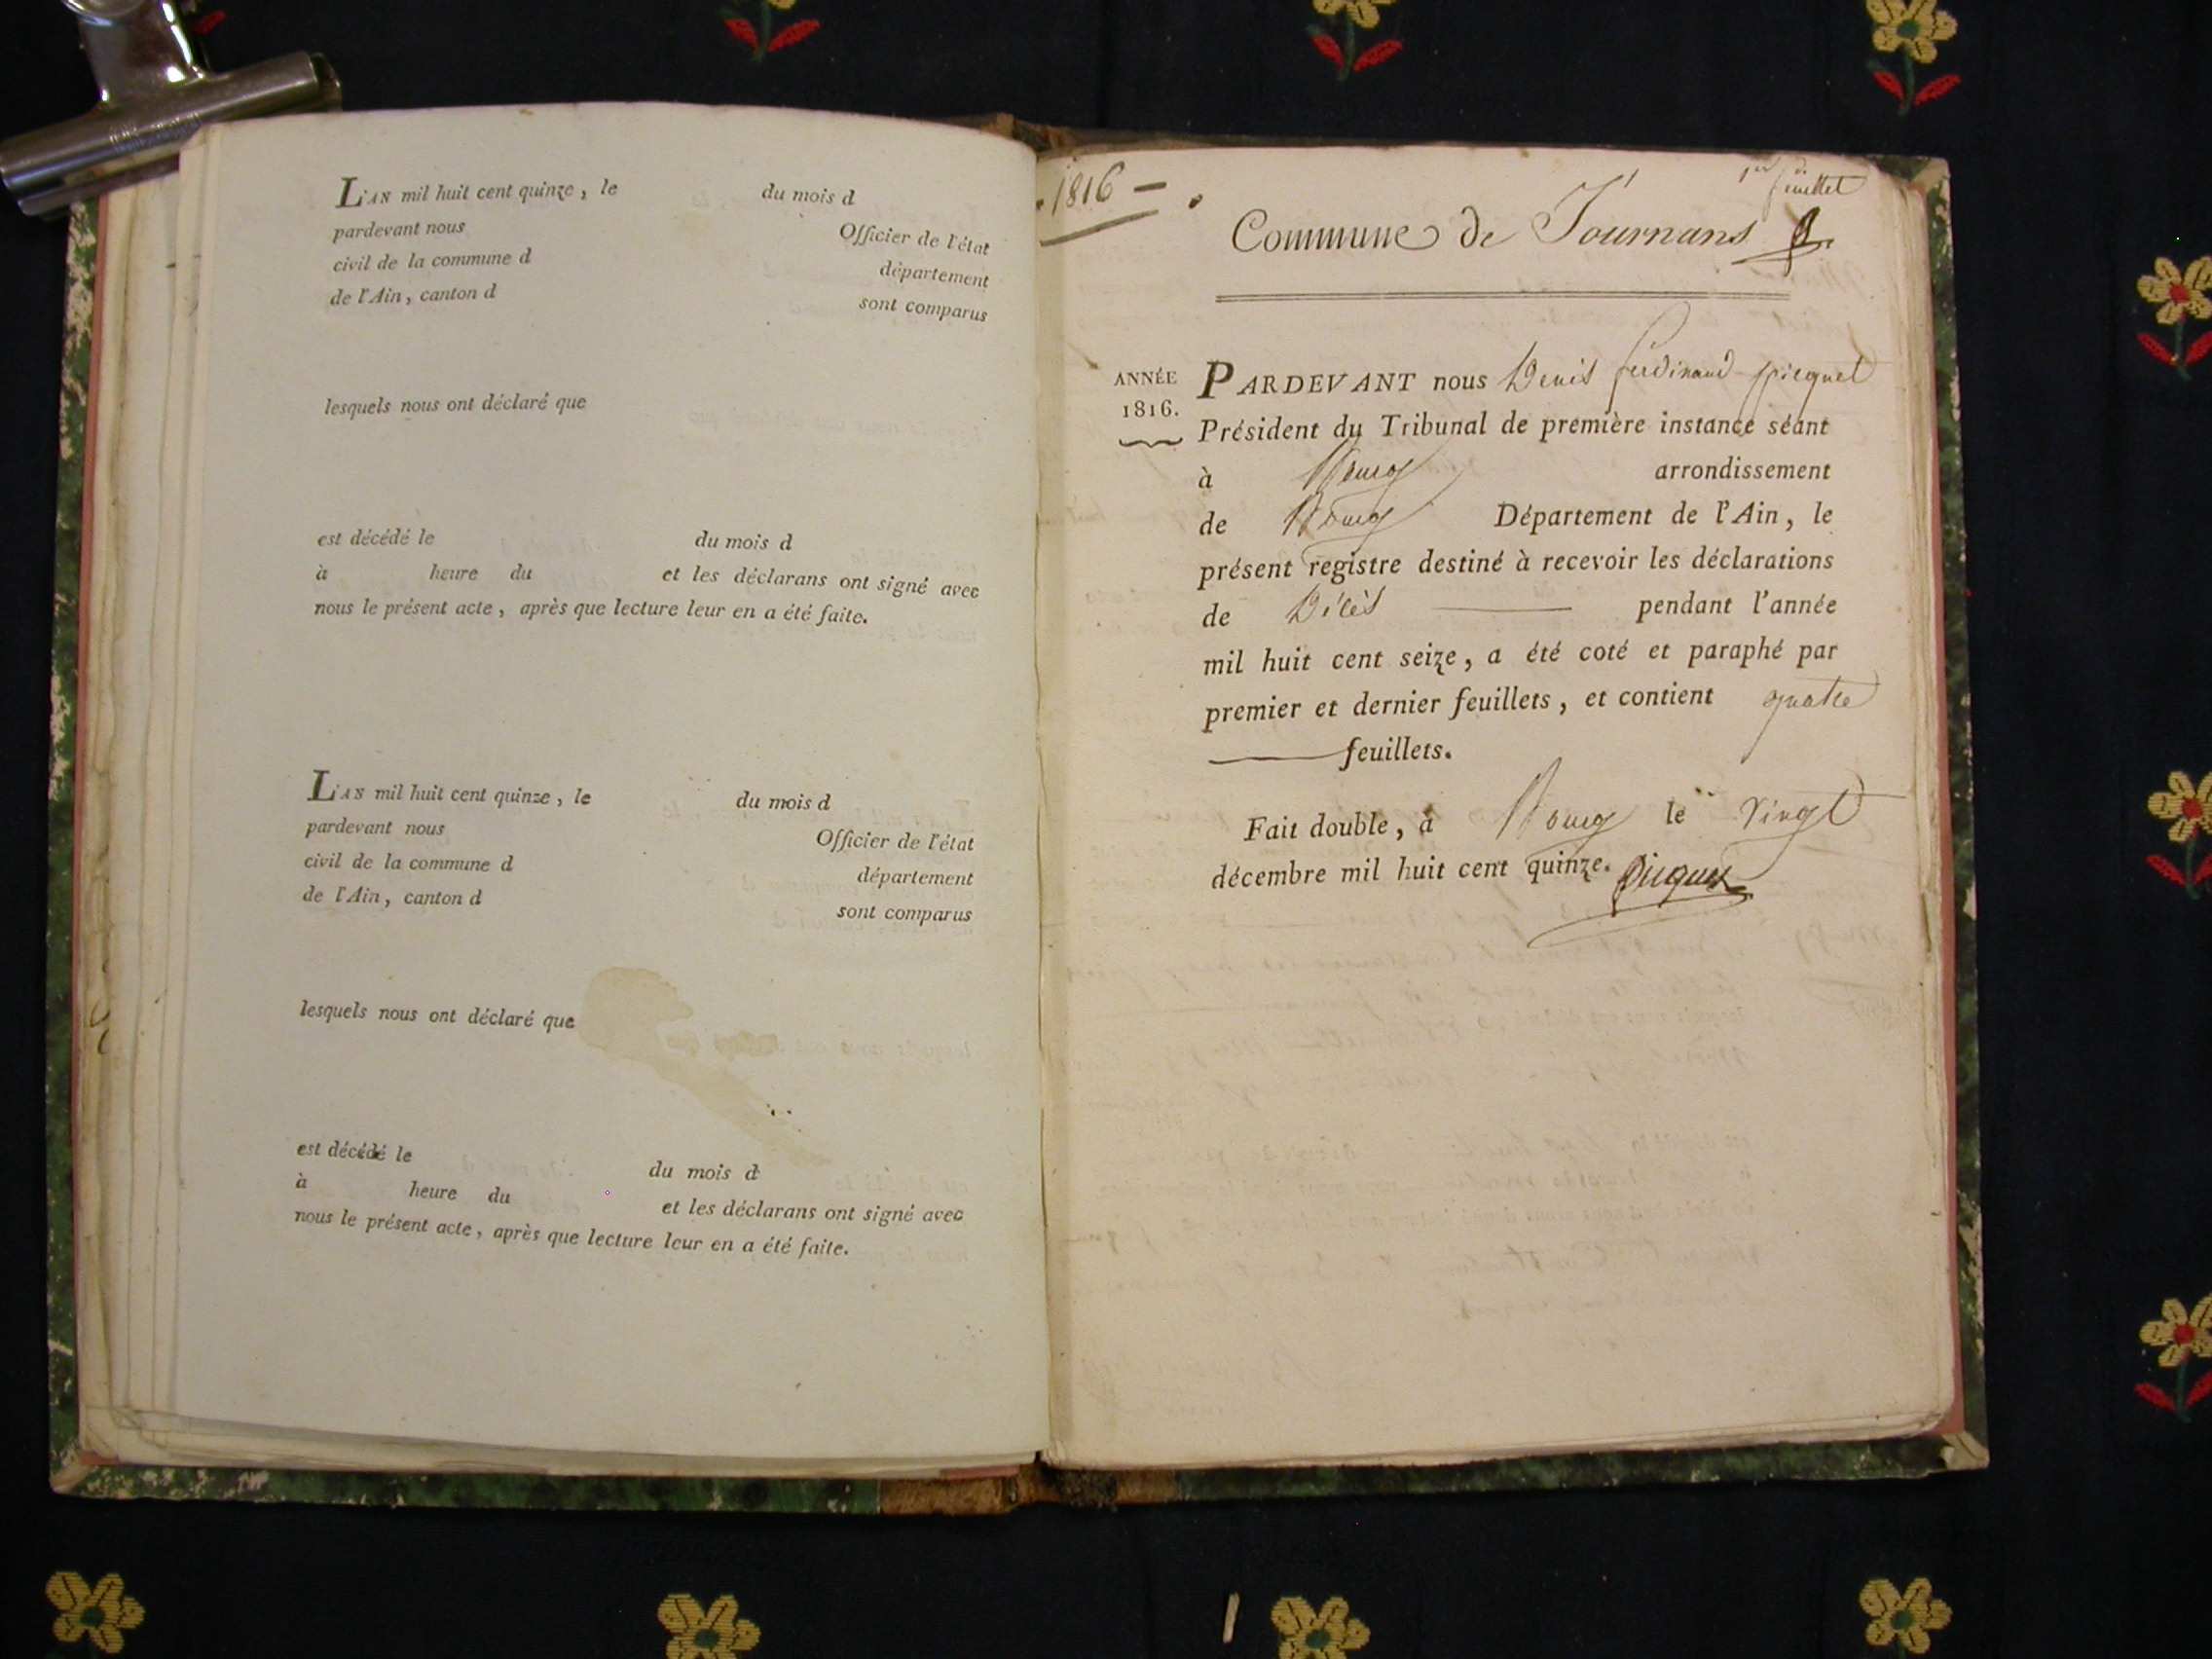 L'AN mil huit cent quinze, le du mois d
pardevant nous Officier de l'état
civil de la commune d département
de l'Ain, canton d sont comparus
lesquels nous ont déclaré que
est décédé le du mois d
à heure du et les déclarans ont signé avec
nous le présent acte, après que lecture leur en a été faite.
L'AN mil huit cent quinze, le du mois d
pardevant nous Officier de l'état
civil de la commune d département
de l'Ain, canton d sont comparus
lesquels nous ont déclaré que
est décédé le du mois d
à heure du et les déclarans ont signé avec
nous le présent acte, après que lecture leur en a été faite.
1816 -
1er feuillet
Commune de Journans
ANNÉE
1816.
PARDEVANT nous Denis ferdinand picquet
Président du Tribunal de première instance séant
à Bourg arrondissement
de Bourg Département de l'Ain, le
présent registre destiné à recevoir les déclarations
de Décès pendant l'année
mil huit cent seize, a été coté et paraphé par
premier et dernier feuillets, et contient quatre
feuillets.
Fait double, à Bourg le vingt
décembre mil huit cent quinze. Picquet